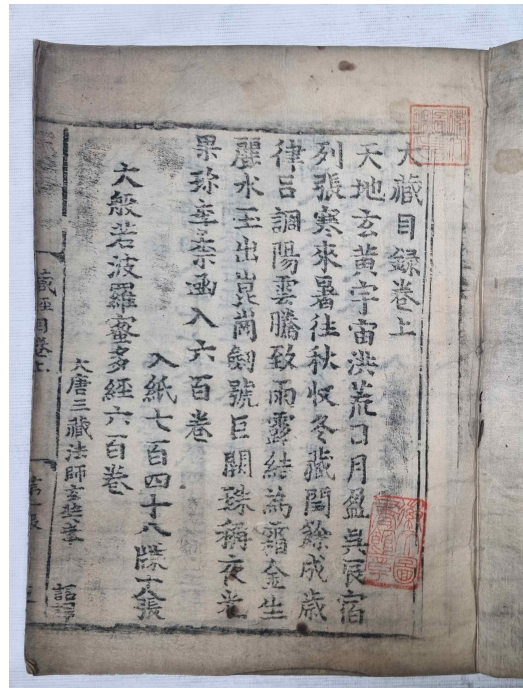 大藏目録卷上
天地玄黃宇宙洪荒日月盈昃辰宿
列張寒來暑往秋收冬藏閏餘成歲
律呂調陽雲騰致雨露結為霜金生
麗水玉出崑崗劍號巨闕珠稱夜光
果珍李柰函入六百卷
入紙七百四十八牒十六張
大般若波羅蜜多經六百卷
大唐三藏法師玄奘奉
詔譯
藏經目卷上
第一張